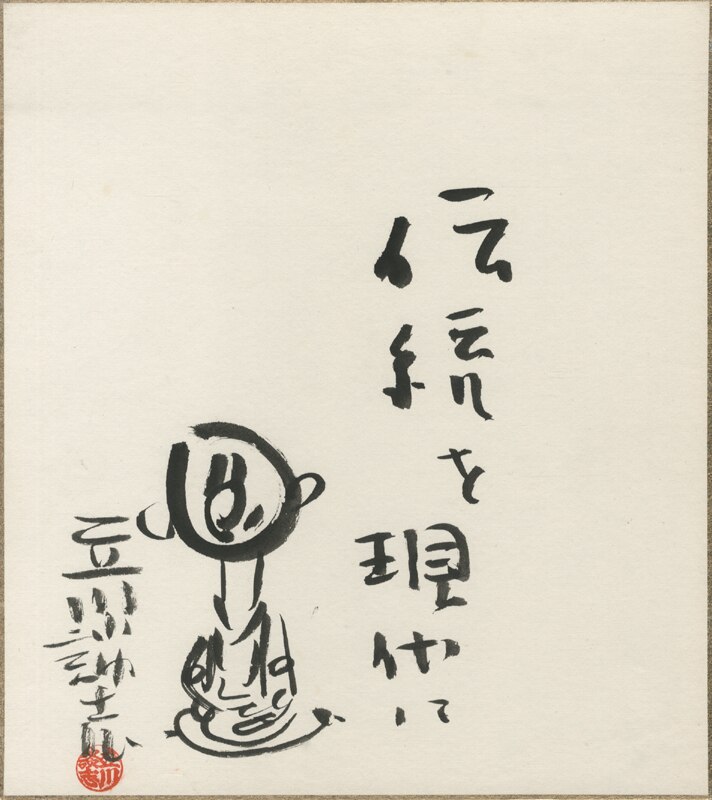 伝統を現代に
立川談志